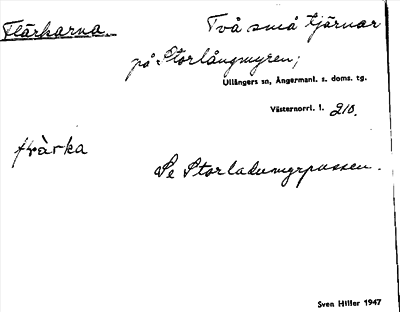 Flärkarna. Två små tjärnar
på Storlångmyren;
Ullångers sn, Ångermanl. s. doms. tg.
Västernorrl. l. 210.
Se Storladumyrpussen.
Sven Hiller 1947